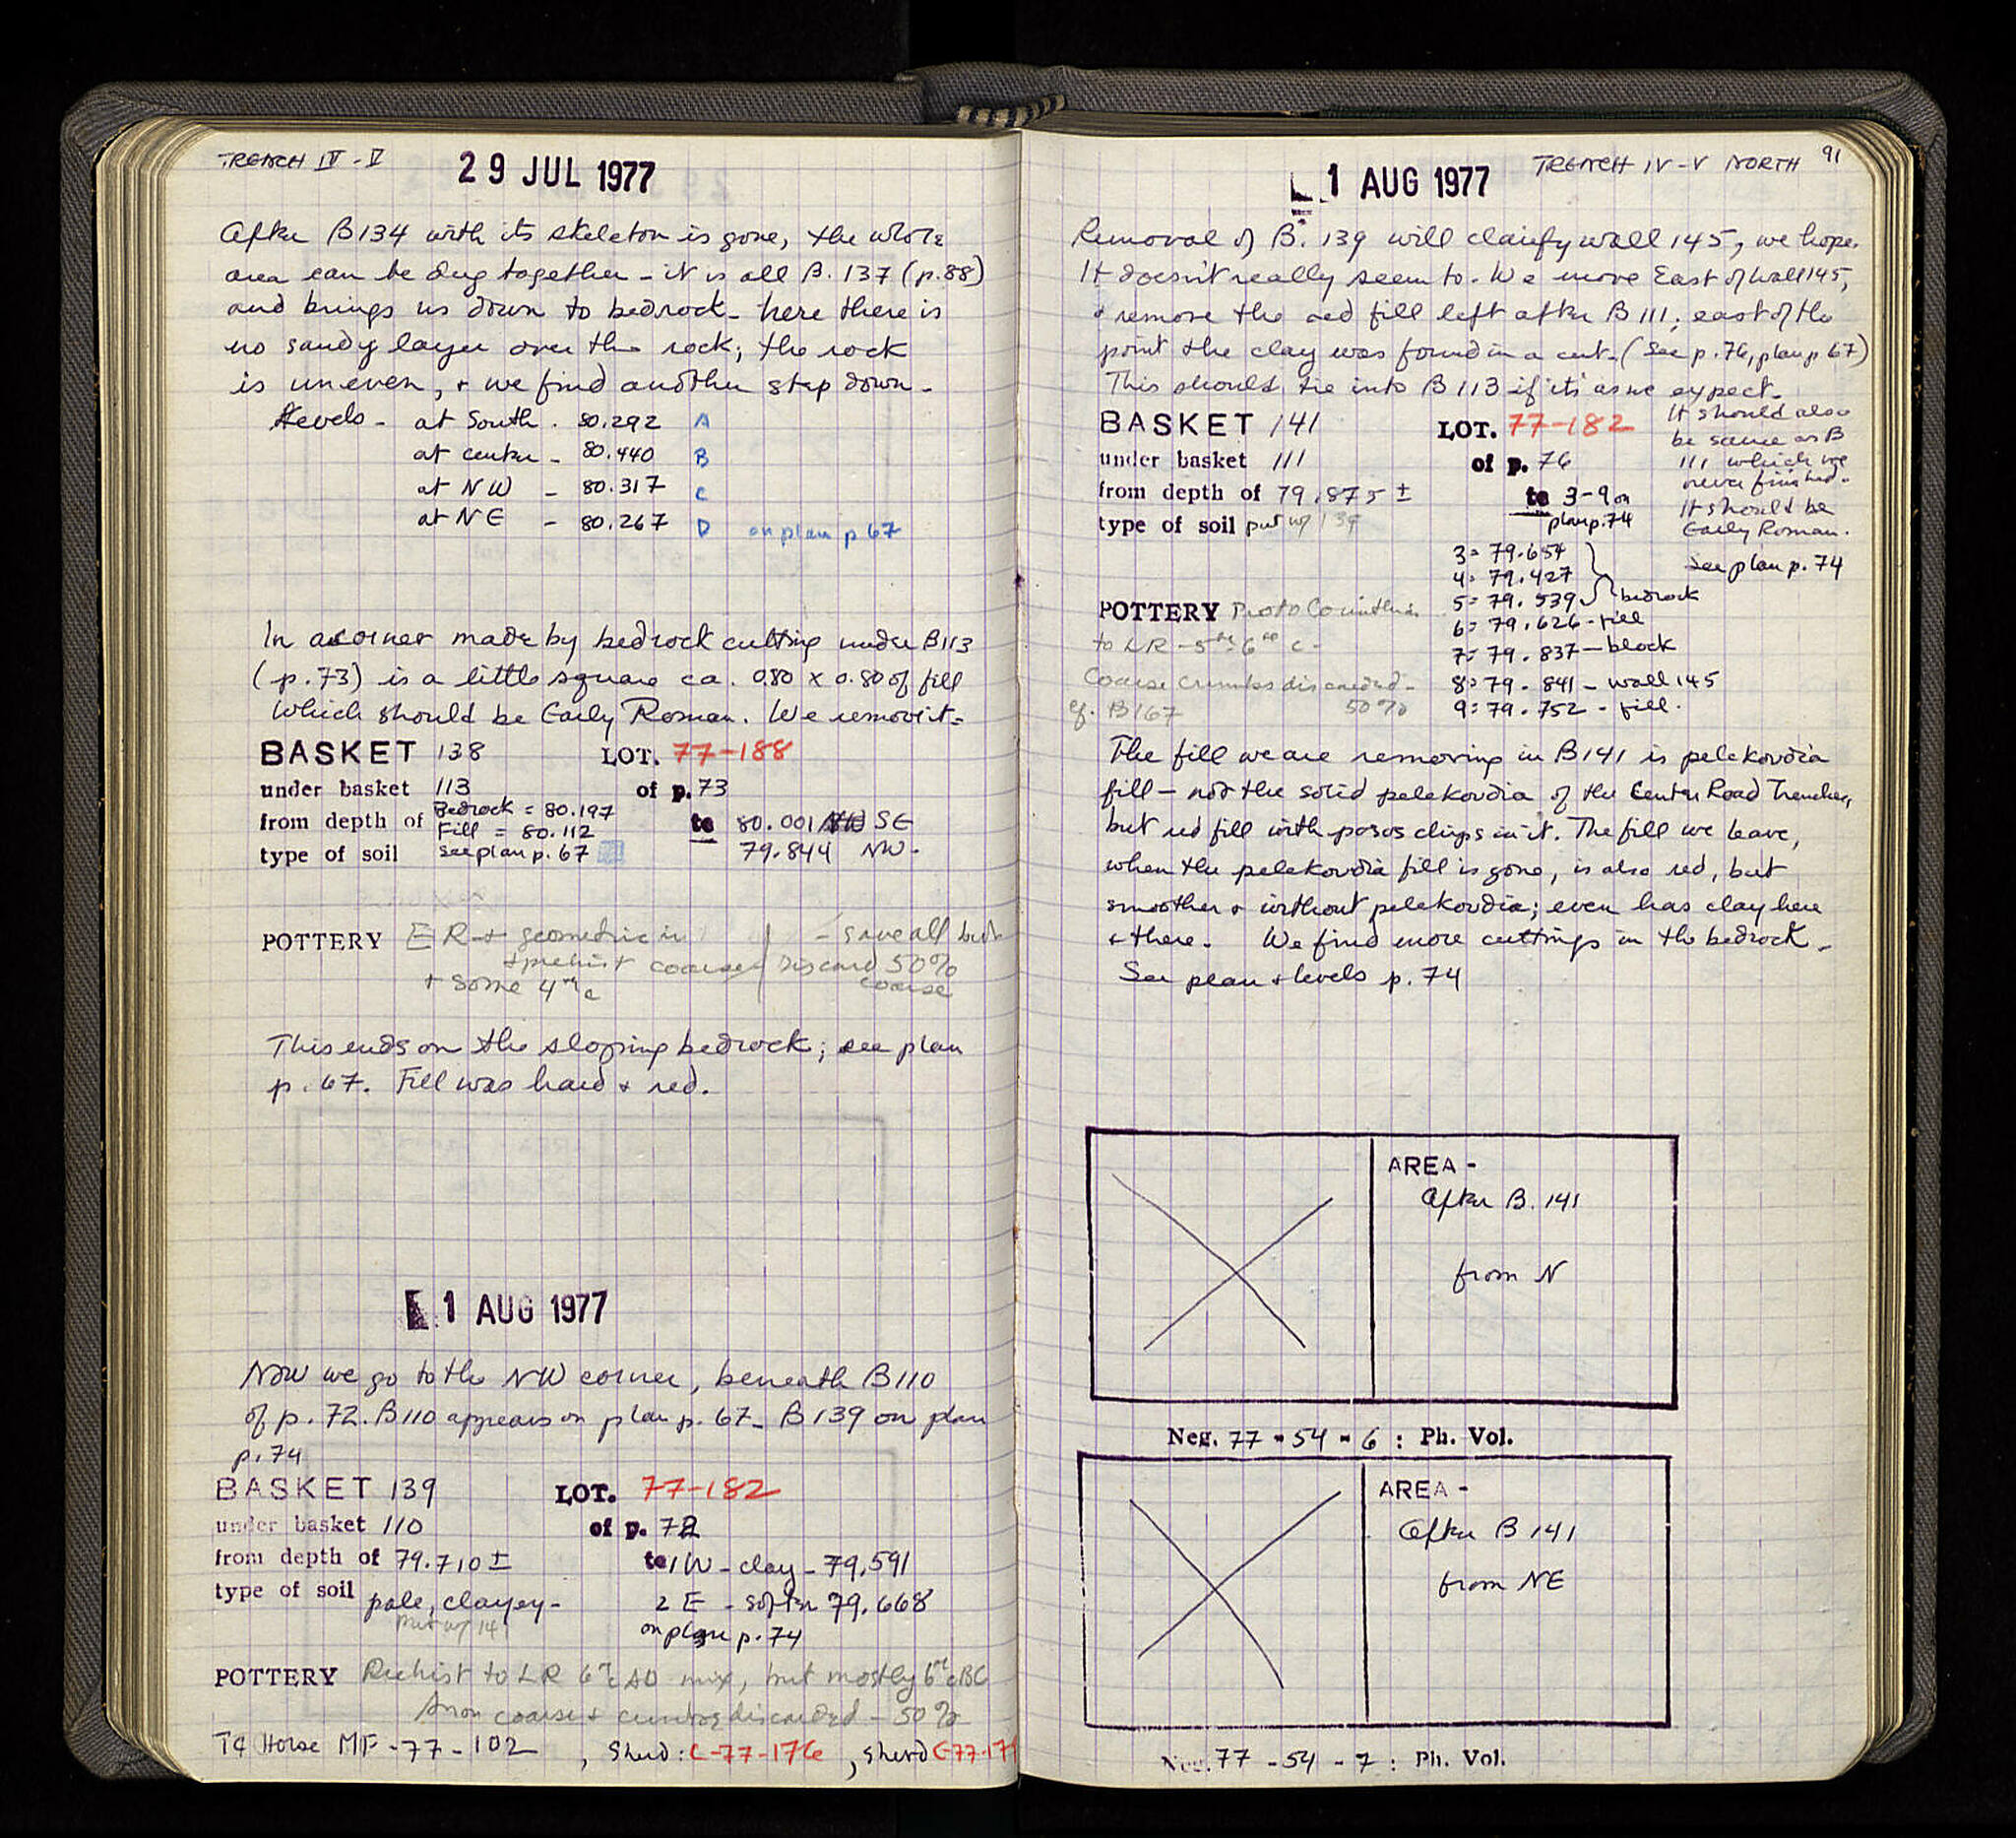 TRENCH IV - V
29 JUL 1977
After B134 with its skeleton is gone, the whole
area can be dug together - it is all B. 137 (p.88)
and brings us down to bedrock - here there is
no sandy layer over the rock; the rock
is uneven, + we find another step down -
Levels - at South . 80.292 A
at center - 80.440 B
at NW - 80.317 C
at NE - 80.267 D on plan p 67
In a corner made by bedrock cutting under B113
(p.73) is a little square ca. 0.80 x 0.80 of fill
which should be Early Roman. We remove it -
BASKET 138 LOT. 77-188
under basket 113 of p. 73
from depth of Bedrock = 80.197
Fill = 80.112
to 80.001 SE
79.844 NW -
type of soil see plan p. 67
POTTERY ER + geometric
+ prehist coarse
+ some 4th c
- save all
Discard 50%
coarse
This ends on the sloping bedrock; see plan
p. 67. Fill was hard + red.
1 AUG 1977
Now we go to the NW corner, beneath B110
of p. 72. B110 appears on plan p. 67 - B139 on plan
p. 74
BASKET 139 LOT. 77-182
under basket 110 of p. 72
from depth of 79.710 ± to 1 W - clay - 79.591
type of soil pale, clayey - 2 E - softer 79.668
put w/ 141
on plan p. 74
POTTERY Prehist to LR 6th c AD mix, but mostly 6th c BC
coarse + crumbs discarded - 50%
TC Horse MF-77-102, Sherd: C-77-176, sherd
TRENCH IV - V NORTH 91
1 AUG 1977
Removal of B. 139 will clarify wall 145, we hope.
It doesn't really seem to. We move East of wall 145,
+ remove the red fill left after B 111; east of the
point the clay was found in a cut - (See p. 76, plan p 67)
This should tie into B 113 if it's as we expect -
BASKET 141 LOT. 77-182
under basket 111 of p. 76
from depth of 79.875 ± to 3-9 on
plan p. 74
type of soil put w/ 139
It should also
be same as B
111 which we
never finished.
It should be
Early Roman.
See plan p. 74
3 = 79.654
4 = 79.427
5 = 79.539 bedrock
6 = 79.626 - fill
7 = 79.837 - block
8 = 79.841 - wall 145
9 = 79.752 - fill.
POTTERY ProtoCorinthian
to LR - 5th - 6th c -
Coarse crumbs discarded -
50%
cf. B167
The fill we are removing in B141 is pelekoudia
fill - not the solid pelekoudia of the Center Road Trenches,
but red fill with poros chips in it. The fill we leave,
when the pelekoudia fill is gone, is also red, but
smoother + without pelekoudia; even has clay here
+ there. We find more cuttings in the bedrock -
See plan + levels p. 74
AREA -
After B. 141
from N
Neg. 77 - 54 - 6 : Ph. Vol.
AREA -
After B 141
from NE
Neg. 77 - 54 - 7 : Ph. Vol.